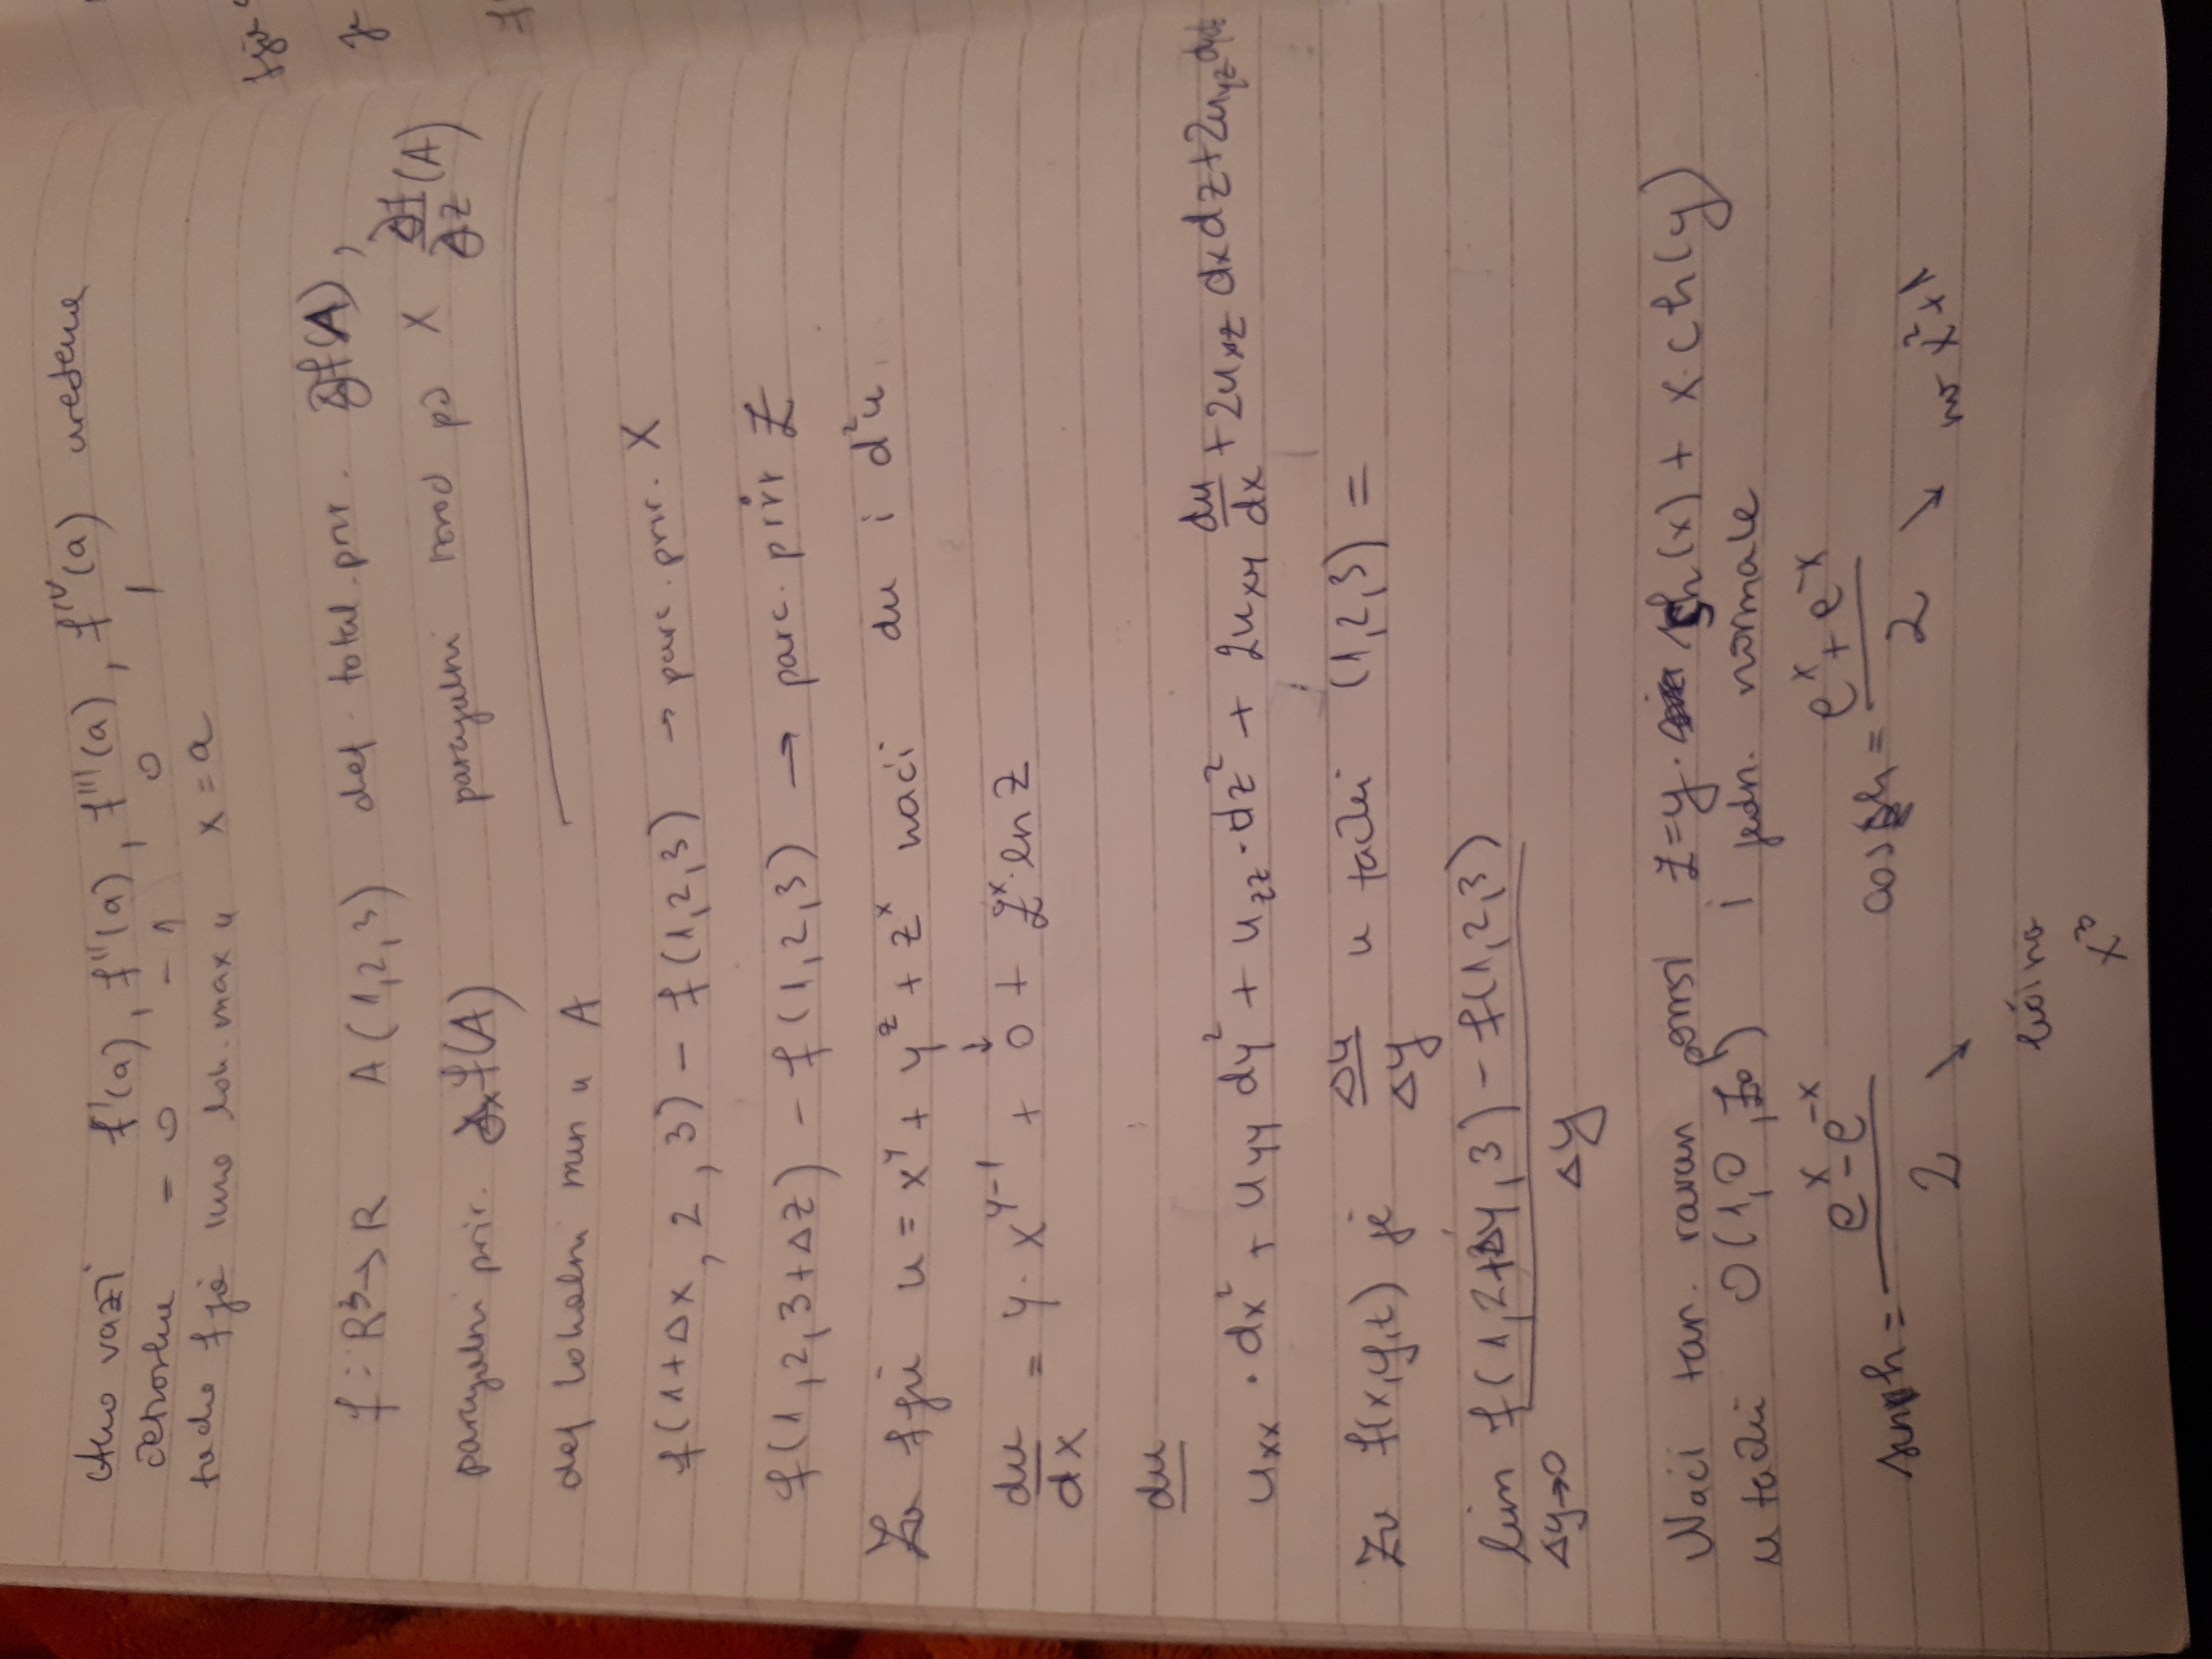 Ako vazi f'(a), f''(a), f'''(a), f^IV(a) uređena
četvorka = 0 -1 0 1
tada fja ima lok. max u x = a
f : R³→R A(1,2,3) def. total. prir. Δf(A),
parcijalni prir. Δxf(A) parcijalni izvod po X ∂f/∂z (A)
def lokalni min u A
f(1+Δx, 2, 3) - f(1,2,3) → parc. prir. X
f(1,2,3+Δz) - f(1,2,3) → parc. prir Z
Za fju u = x^y + y^z + z^x naći du i d²u
↓
du/dx = y · x^(y-1) + 0 + z^x · ln z
du
u_xx · dx² + u_yy dy² + u_zz · dz² + 2u_xy du/dx + 2u_xz dx dz + 2u_yz dydz
Za f(x,y,t) je Δu/Δy u tački (1,2,3) =
lim Δy→0 (f(1,2+Δy,3) - f(1,2,3)) / Δy
Naći tan. ravan površi z=y· sh(x) + x·ch(y)
u tački O(1,0,z₀) i jedn. normale
sinh = (e^x - e^-x) / 2 cosh = (e^x + e^-x) / 2
↘ ↘ x²+1
liči na
x³